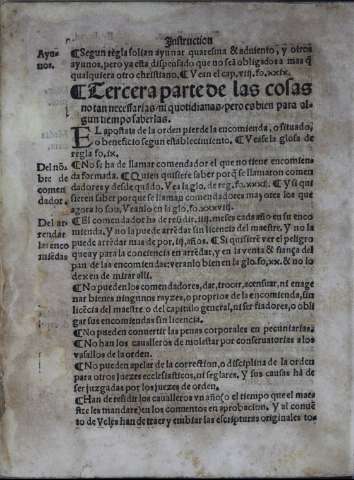 Instruction
Ayu-
nos.
¶Segun regla solian ayunar quaresma & aduiento, y otros
ayunos, pero ya esta dispensado que no seã obligados a mas q̃
qualquiera otro christiano. ¶Vean el cap. viij. fo. xxix.
¶Tercera parte de las cosas
no tan necessarias ni quotidianas: pero es bien para al-
gun tiempo saberlas.
EL apostata de la orden pierde la encomienda, o situado,
o beneficio segun establecimiento. ¶Vease la glosa de
regla fo. ix.
Del nõ-
bre de
comen
dador.
¶No se ha de llamar comendador el que no tiene encomien
da formada. ¶Quien quisiere saber por q̃ se llamaron comen
dadores y desde quãdo. Vea la glo. de reg. fo. xxxj. ¶Y si qui
sieren saber por que se llaman comendadores mayores los que
agora lo son, Vean lo en la glo. fo. xxxviij.
Del ar-
rendar
las enco
miẽdas
¶El comendador ha de residir. iiij. meses cada año en su enco
mienda, Y no la puede arrẽdar sin licencia del maestre. Y no la
puede arrẽdar mas de por. iij. años. ¶Si quisierẽ ver el peligro
que ay para la conciencia en arrẽdar, y en la venta & fiança del
pan de las encomiendas: veran lo bien en la glo. fo. xx. & no lo
dexen de mirar alli.
¶No pueden los comendadores, dar, trocar, acensuar, ni enage
nar bienes ningunos rayzes, o proprios de la encomienda, sin
licẽcia del maestre o del capitulo general, ni ser fiadores, o obli
gar sus encomiendas sin licencia.
¶No pueden conuertir las penas corporales en pecuniarias.
¶No han los caualleros de molestar por conseruatorias a los
vasallos de la orden.
¶No pueden apelar de la correction, o disciplina de la orden
para otros juezes ecclesiasticos, ni seglares. Y sus causas hã de
ser juzgadas por los juezes de orden.
¶Han de residir los caualleros vn año (o el tiempo que el maes
tre les mandare) en los conuentos en aprobacion. Y al conuẽ
to de Veles han de traer y embiar las escripturas originales to-